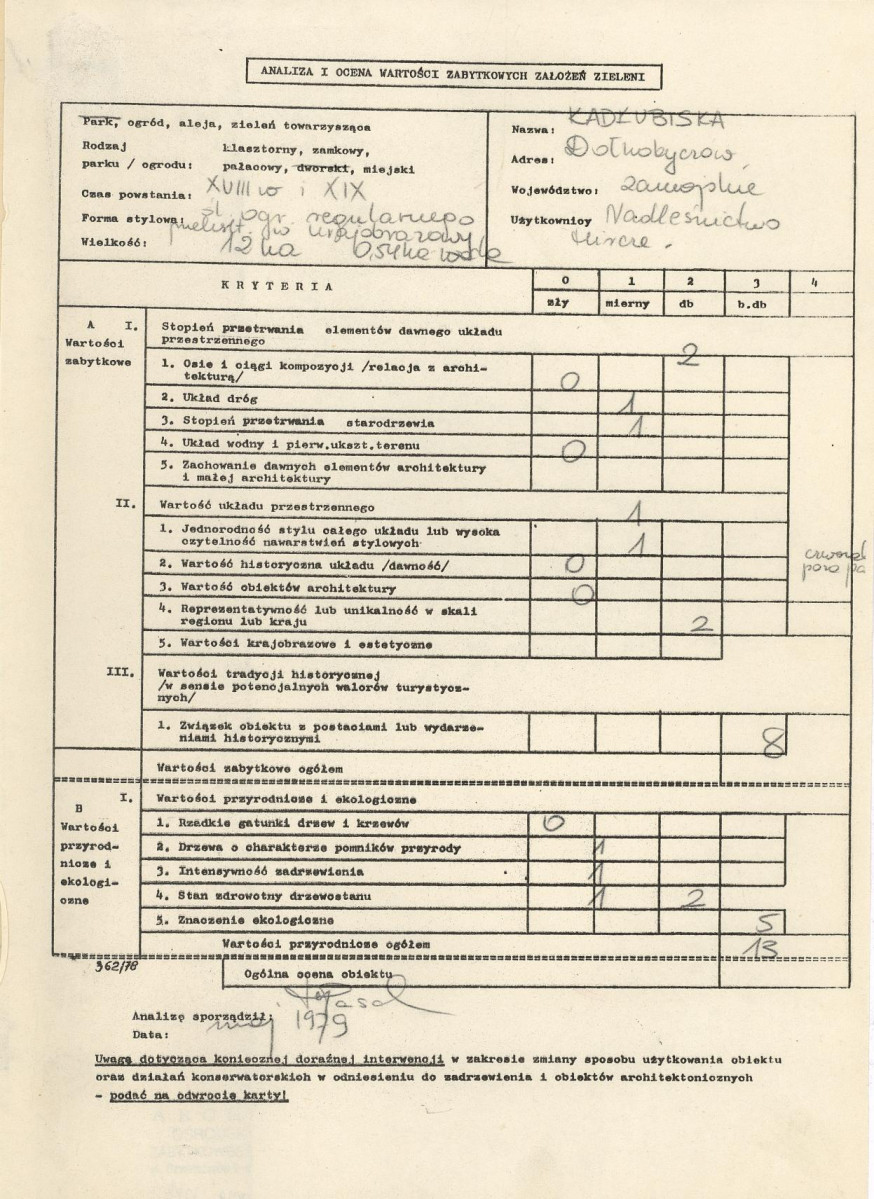 ANALIZA I OCENA WARTOŚCI ZABYTKOWYCH ZAŁOŻEŃ ZIELENI
Park, ogród, aleja, zieleń towarzysząca
Rodzaj klasztorny, zamkowy,
parku / ogrodu: pałacowy, dworski, miejski
Czas powstania: XVIII w i XIX
Forma stylowa: śl. ogr regularnego
w krajobrazowy
Wielkość: 12 ha 0,54 ha woda
Nazwa: KADŁUBISKA
Adres: Dołhobyczów
Województwo: zamojskie
Użytkownicy Nadleśnictwo
Mircze.
KRYTERIA
0 1 2 3 4
zły mierny db b.db
A I. Stopień przetrwania elementów dawnego układu
Wartości przestrzennego
zabytkowe
2
1. Osie i ciągi kompozycji /relacja z archi-
tekturą/ 0
2. Układ dróg 1
3. Stopień przetrwania starodrzewia 1
4. Układ wodny i pierw.ukszt.terenu 0
5. Zachowanie dawnych elementów architektury
i małej architektury
II. Wartość układu przestrzennego 1
1. Jednorodność stylu całego układu lub wysoka
czytelność nawarstwień stylowych 1
2. Wartość historyczna układu /dawność/ 0
3. Wartość obiektów architektury 0
4. Reprezentatywność lub unikalność w skali
regionu lub kraju 2
5. Wartości krajobrazowe i estetyczne
III. Wartości tradycji historycznej
/w sensie potencjalnych walorów turystycz-
nych/
1. Związek obiektu z postaciami lub wydarze-
niami historycznymi 8
Wartości zabytkowe ogółem
B I. Wartości przyrodnicze i ekologiczne
Wartości
przyrod-
nicze i
ekologi-
czne
1. Rzadkie gatunki drzew i krzewów 0
2. Drzewa o charakterze pomników przyrody 1
3. Intensywność zadrzewienia 1
4. Stan zdrowotny drzewostanu 1 2
5. Znaczenie ekologiczne 5
Wartości przyrodnicze ogółem 13
362/78
Ogólna ocena obiektu
Analizę sporządził:
Data: maj 1979
Uwagę dotyczącą koniecznej doraźnej interwencji w zakresie zmiany sposobu użytkowania obiektu
oraz działań konserwatorskich w odniesieniu do zadrzewienia i obiektów architektonicznych
- podać na odwrocie karty!